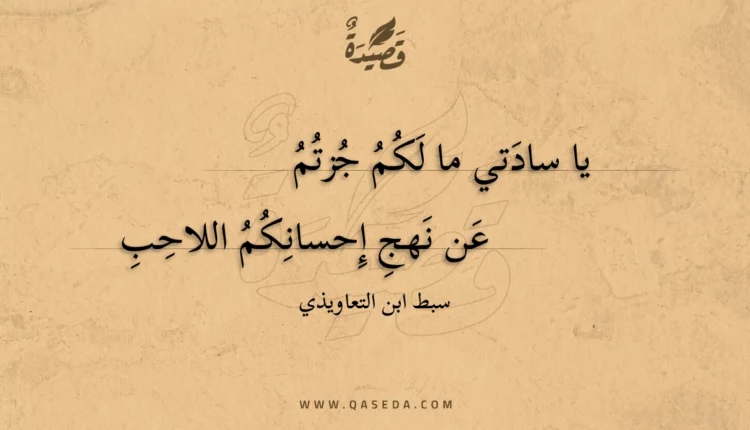 قَصِيدَةٌ
يا سادَتي ما لَكُمُ جُزتُمُ
عَن نَهجِ إِحسانِكُمُ اللاحِبِ
سبط ابن التعاويذي
WWW.QASEDA.COM